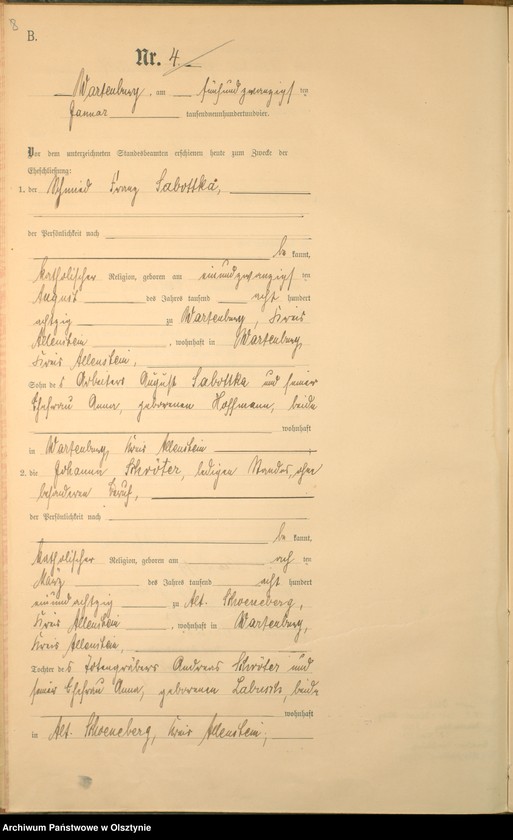 8
B.
Nr. 4
Wartenburg, am fünfundzwanzigsten
Januar tausendneunhundertundvier.
Vor dem unterzeichneten Standesbeamten erschienen heute zum Zwecke der
Eheschließung:
1. der Schmied Franz Sabottka,
der Persönlichkeit nach
be kannt,
katholischer Religion, geboren am einundzwanzigsten
August des Jahres tausend acht hundert
achtzig zu Wartenburg, Kreis
Allenstein, wohnhaft in Wartenburg,
Kreis Allenstein,
Sohn des Arbeiters August Sabottka und seiner
Ehefrau Anna, geborenen Hoffmann, beide
wohnhaft
in Wartenburg, Kreis Allenstein;
2. die Johanna Schröter, ledigen Standes, ohne
besonderen Beruf,
der Persönlichkeit nach
be kannt,
katholischer Religion, geboren am ten
März des Jahres tausend acht hundert
einundachtzig zu Alt. Schoeneberg,
Kreis Allenstein, wohnhaft in Wartenburg,
Kreis Allenstein,
Tochter des Totengräbers Andreas Schröter und
seiner Ehefrau Anna, geborenen Labusch, beide
wohnhaft
in Alt. Schoeneberg, Kreis Allenstein,
Archiwum Państwowe w Olsztynie